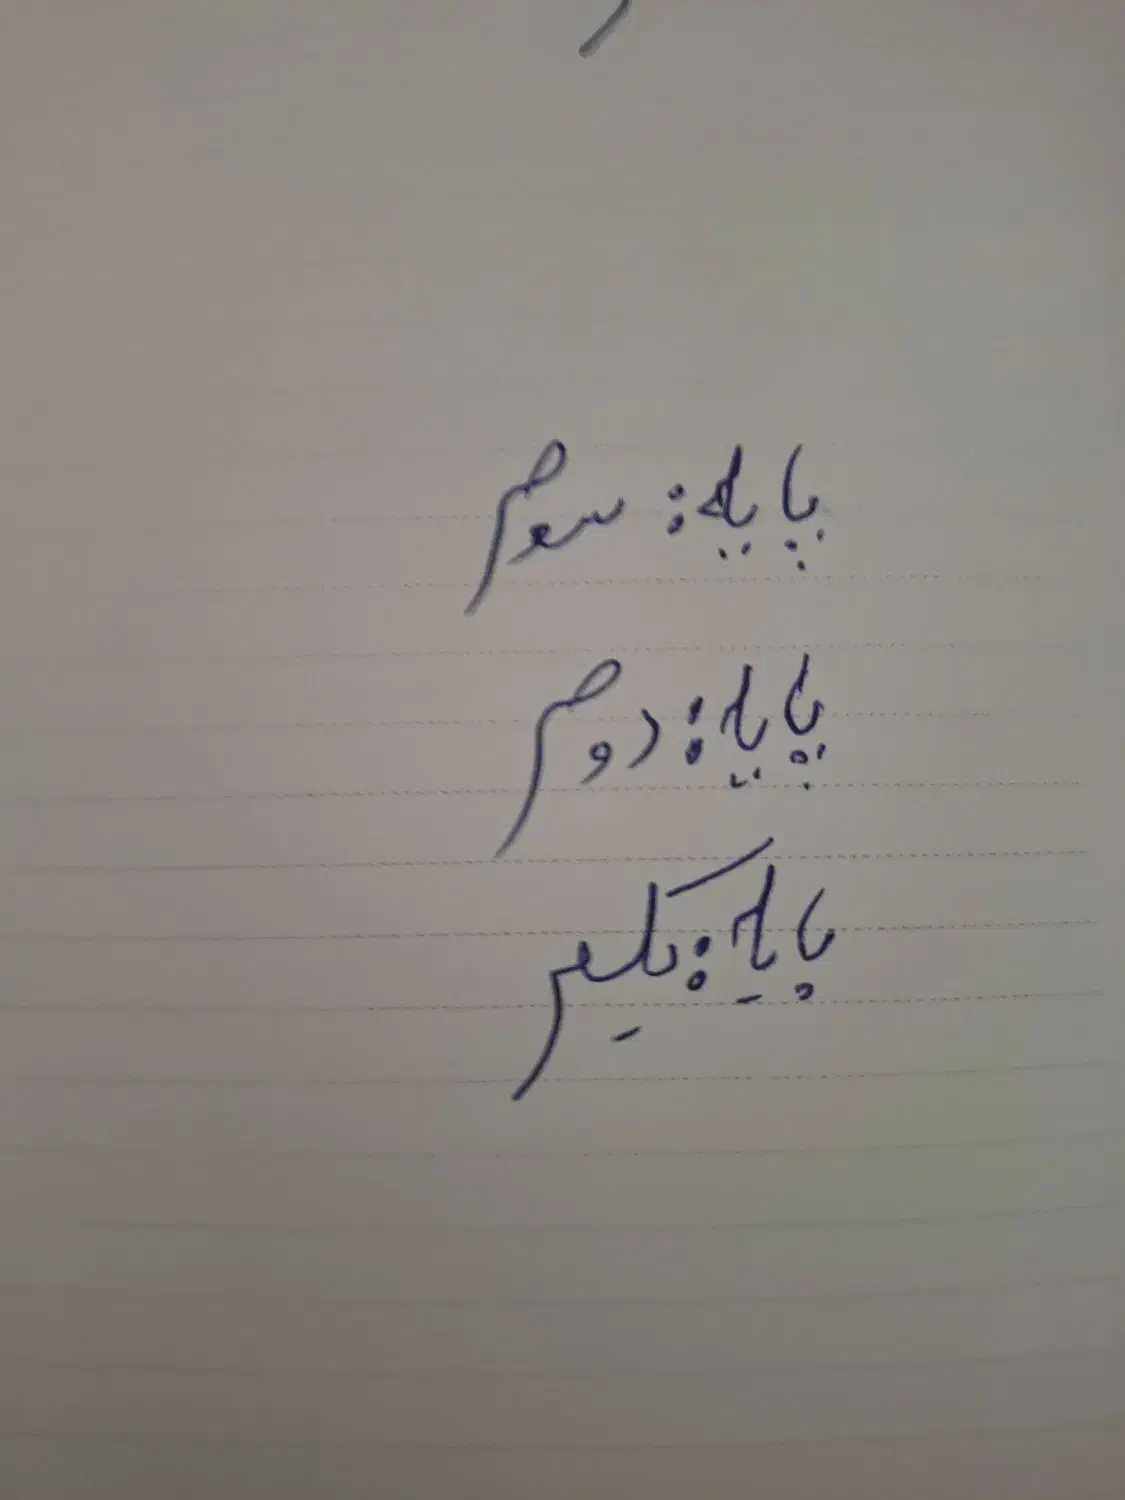 پایه: سوم
پایه: دوم
پایه: یکم